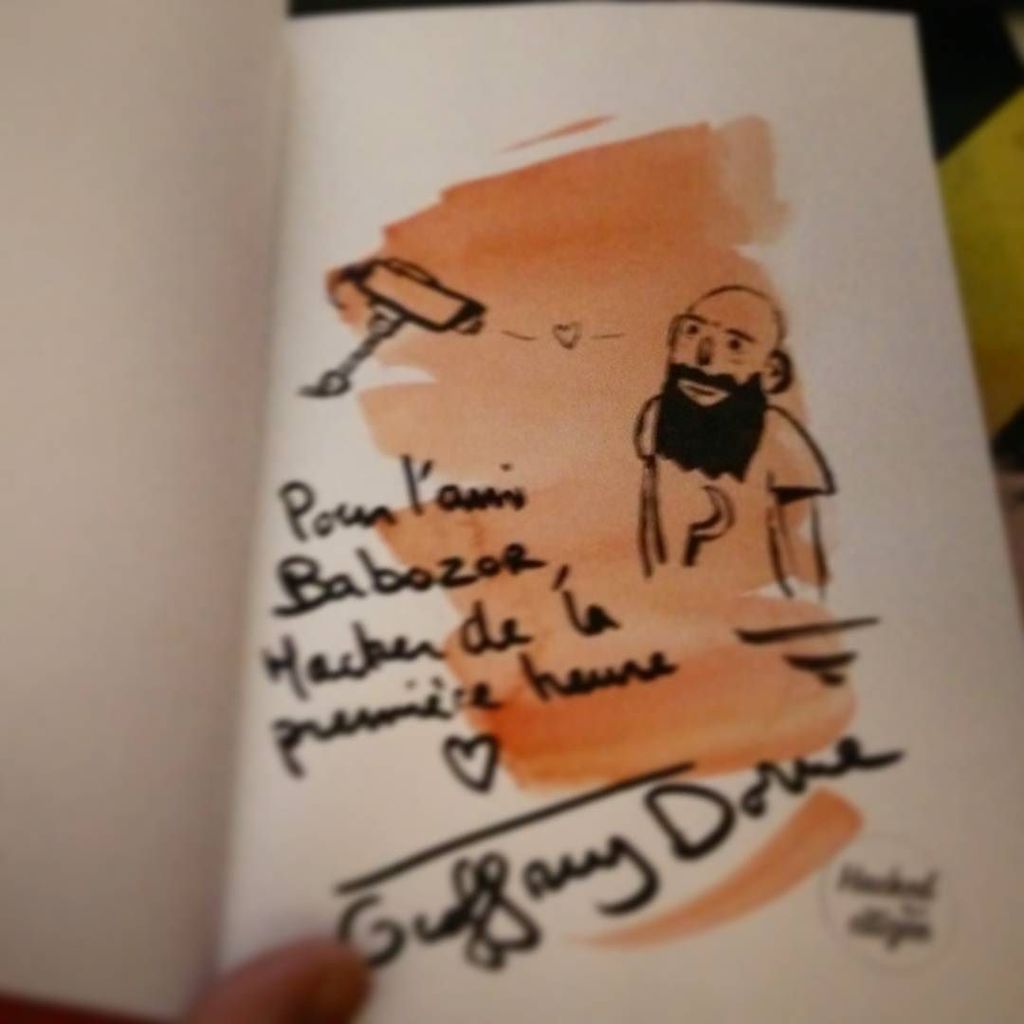 Pour l'ami
Babozor,
Hacker de la
première heure
Geoffrey Dorne
Hacked